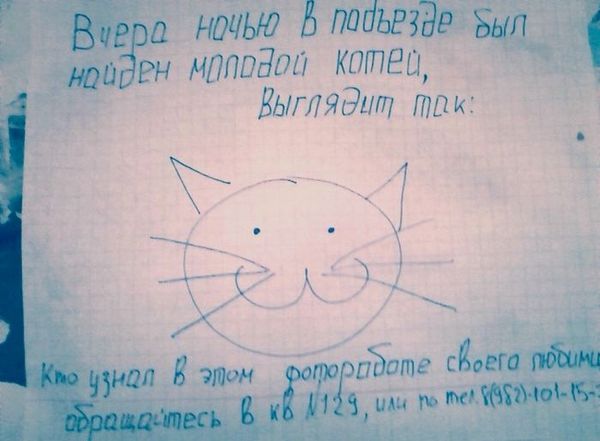 Вчера ночью в подъезде был
найден молодой котей,
Выглядит так:
Кто узнал в этом фотороботе своего любими
обращайтесь в кв №129, или по тел. 8(952)-101-15-